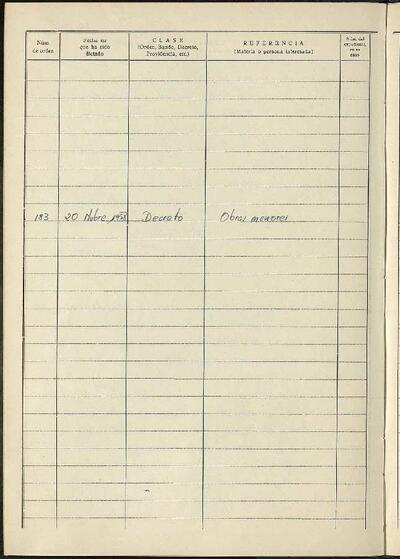 Núm.
de orden
Fecha en
que ha sido
dictado
CLASE
(Orden, Bando, Decreto,
Providencia, etc.)
REFERENCIA
(Materia o persona interesada)
Núm. del
expediente
en su
caso
183 20 Nbre. Decreto Obras menores